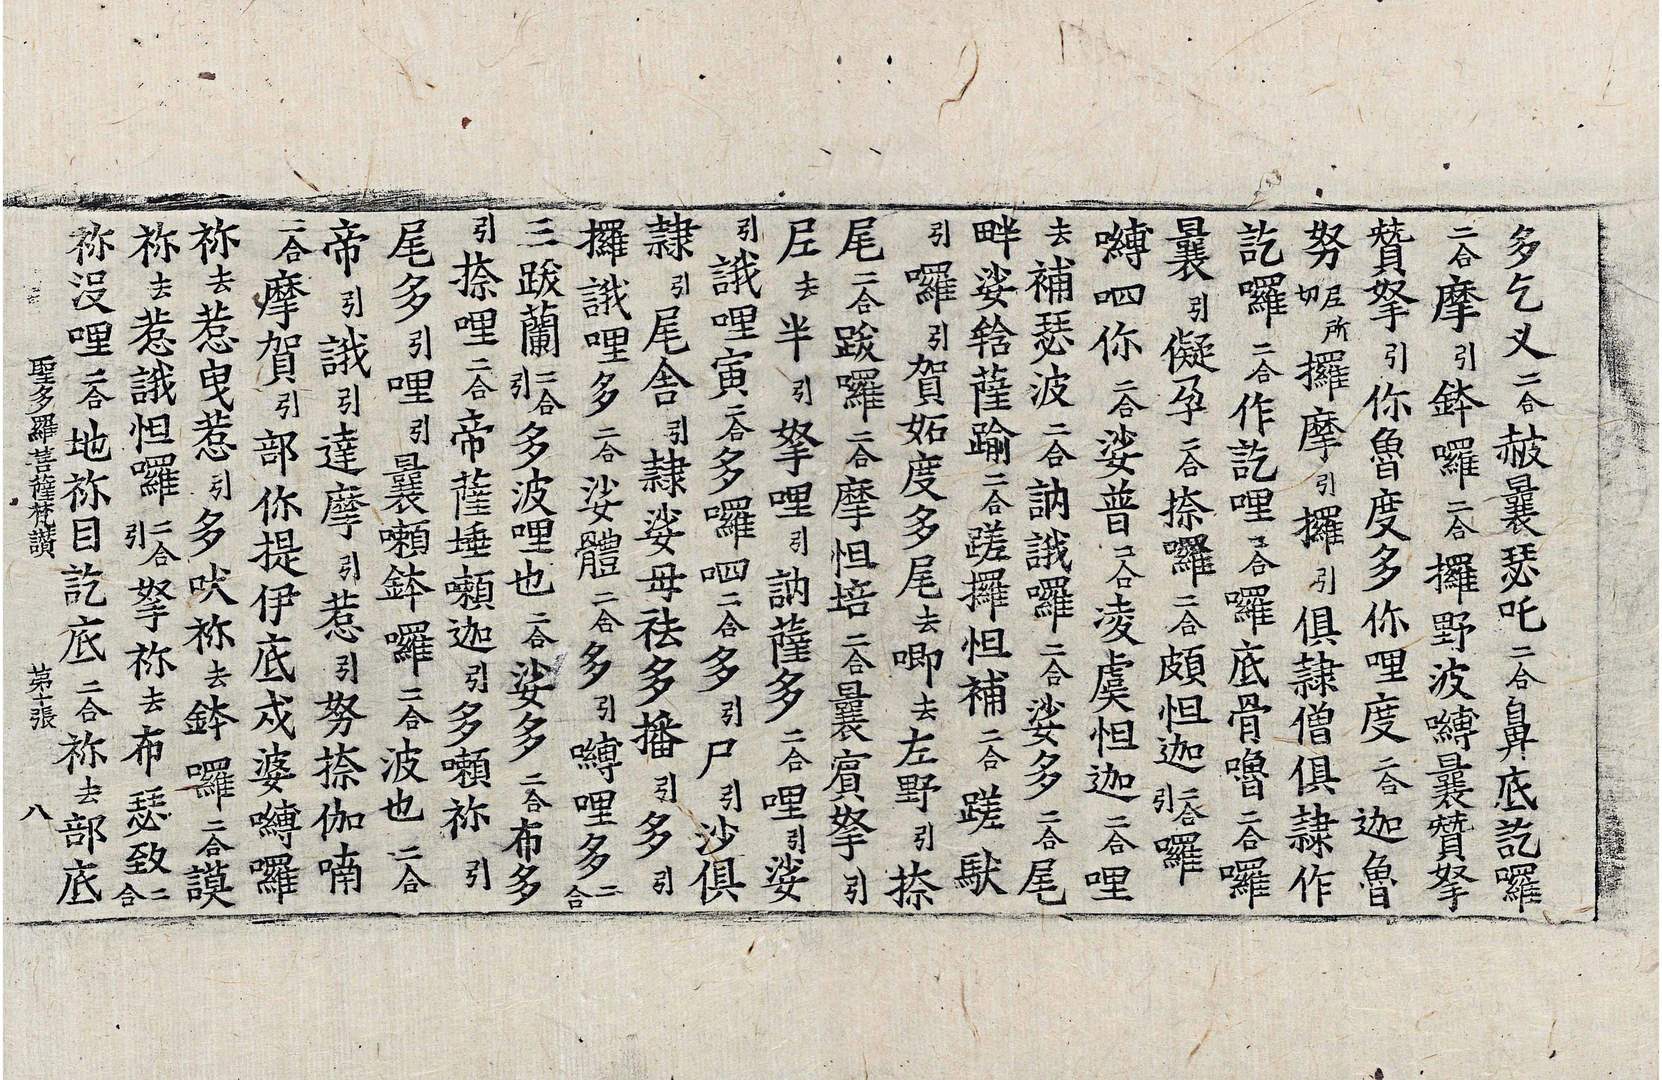 多乞叉二合赧曩瑟吒二合鼻底訖囉
二合摩引鉢囉二合攞野波嚩曩贊拏
贊拏引你魯度多你哩度二合迦魯
努尼所切攞摩引攞引俱隷僧俱隷作
訖囉二合作訖哩二合囉底骨嚕二合囉
曩引儗孕二合捺囉二合頗怛迦二合引囉
嚩呬你二合娑普二合凌虞怛迦二合哩
去補瑟波二合訥誐囉二合娑多二合尾
畔娑鎋薩踰二合蹉攞怛補二合蹉馱
引囉引賀妬度多尾去唧去左野引捺
尾二合跋囉二合摩怛培二合曩賔拏引
㞐去半引拏哩引訥薩多二合哩引娑
引誐哩寅二合多囉呬二合多引尸引沙俱
隷引尾舍引隷娑毋祛多播引多引
攞誐哩多二合娑體二合多引嚩哩多二合
三跋蘭二合引多波哩也二合娑多二合布多
引捺哩二合帝薩埵嚬迦引多嚬祢引
尾多引哩引曩嚬鉢囉二合波也二合
帝引誐引達摩引惹引努捺伽喃
二合摩賀引部你提伊底戍婆嚩囉
祢去惹曳惹引多吠祢去鉢囉二合謨
祢去惹誐怛囉二合引拏祢去布瑟致二合
祢沒哩二合地祢目訖底二合祢去部底
聖多羅菩薩梵讃 第十張 八